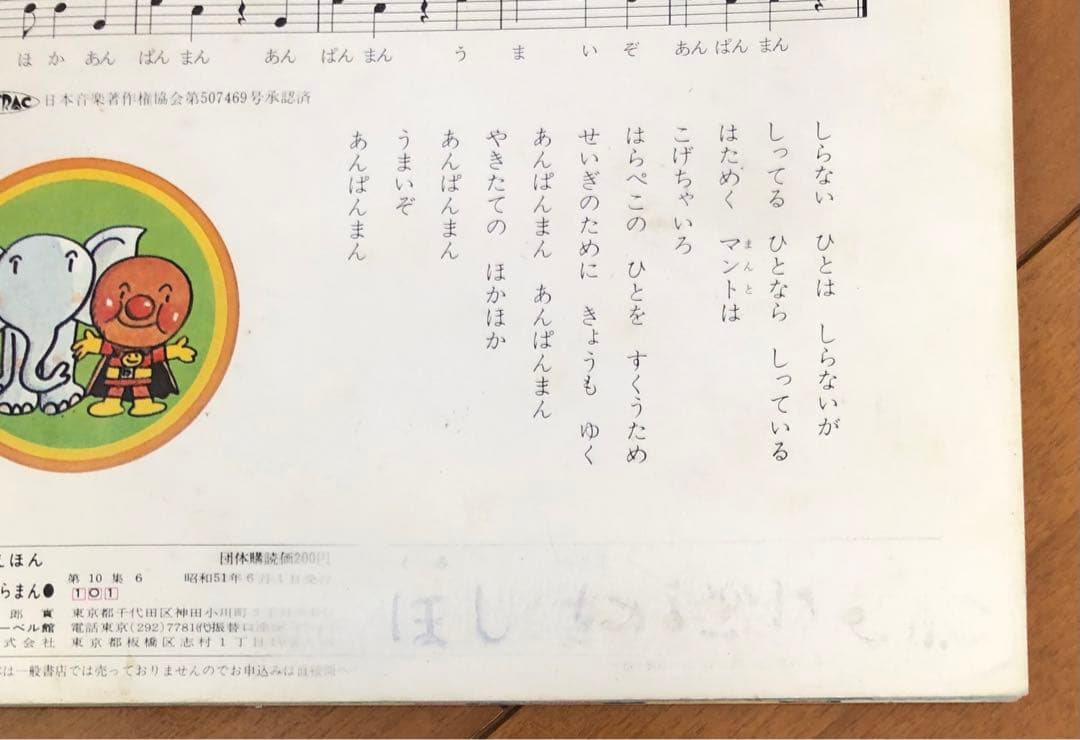 ほ か あん ぱん まん あん ぱん まん う ま い ぞ あん ぱん まん
日本音楽著作権協会第507469号承認済
しらない ひとは しらないが
しってる ひとなら しっている
はためく マントは
まんと
こげちゃいろ
はらぺこの ひとを すくうため
せいぎのために きょうも ゆく
あんぱんまん あんぱんまん
やきたての ほかほか
あんぱんまん
うまいぞ
あんぱんまん
えほん 団体購読価200円
らまん● 第10集6 昭和51年6
101
郎 實 東京都千代田区神田小川町
ーベル館 電話東京(292)7781(代)振替口
式会社 東京都板橋区志村1丁目
は一般書店では売っておりませんのでお申込みは直接